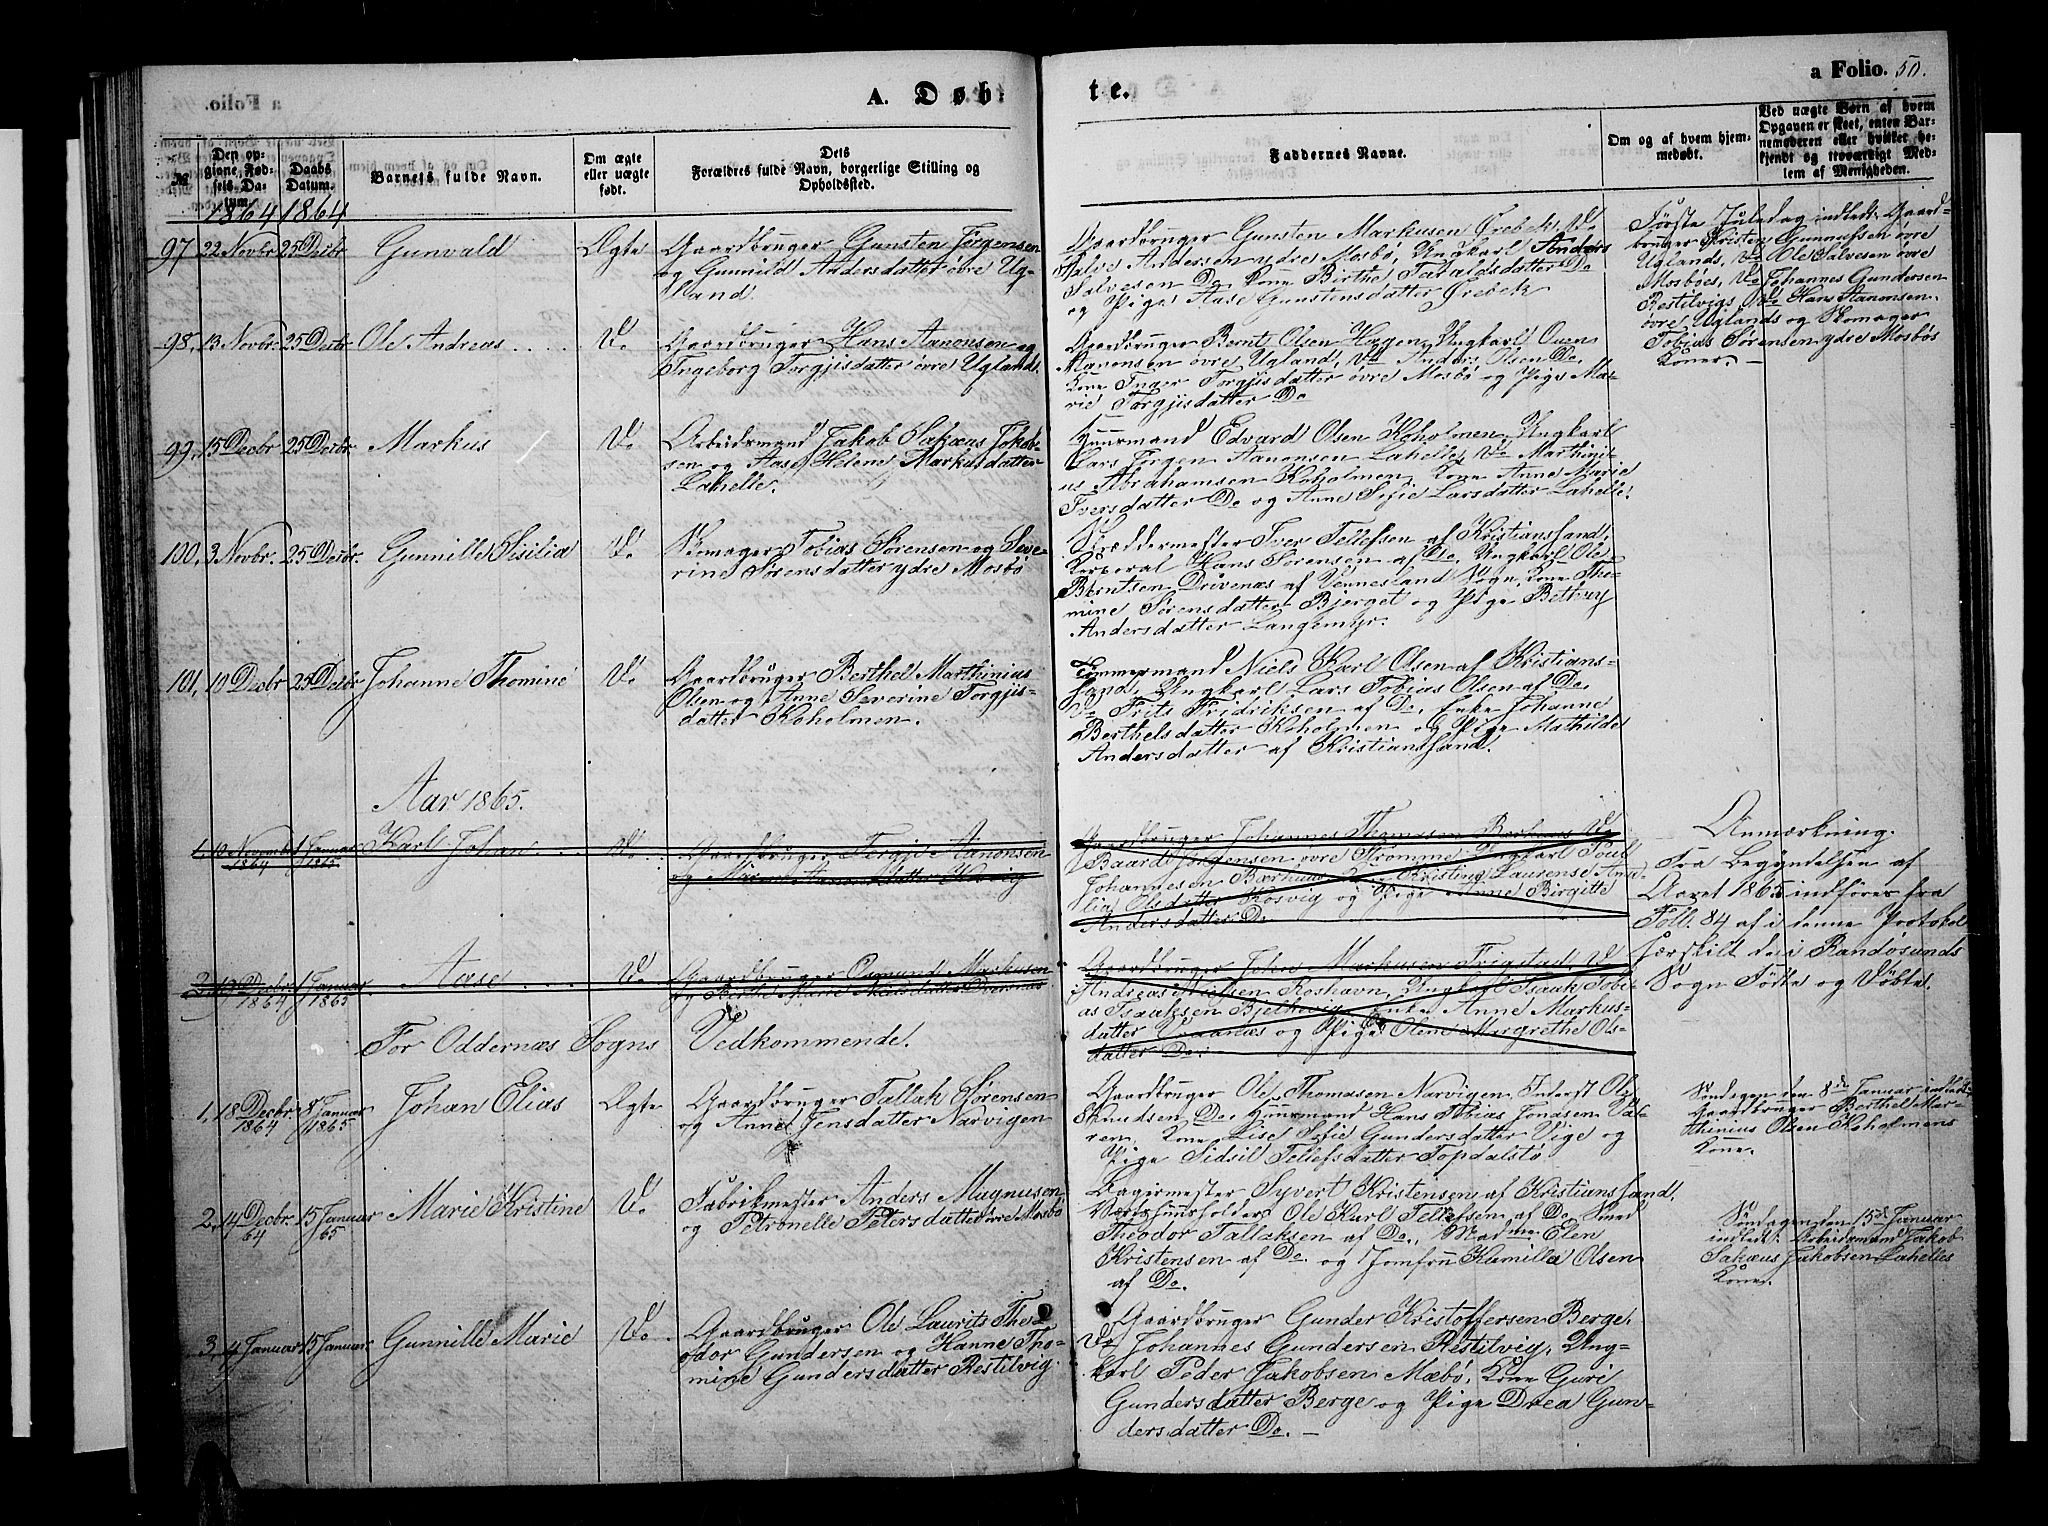 a Folio. 50.
A. Døbte.
№
Den opgivne Fødsels Datum.
Daabs Datum.
Barnets fulde Navn.
Om ægte eller uægte født.
Dets Forældres fulde Navn, borgerlige Stilling og Opholdssted.
Faddernes Navne.
Om og af hvem hjemmedøbt.
Ved uægte Børn af hvem Opgaven er skeet, enten Barnemoderen eller hvilket bekjendt og troværdigt Medlem af Menigheden.
1864 1864
97 22 Novbr 25 Decbr Gunvald Ægte
Gaardbruger Gunsten Jørgensen
og Gunnild Andersdatter øvre Ug-
land.
Gaardbruger Gunsten Markusen Ørebek, Do
Salve Andersen ydre Mosbø, Ungkarl Anders
Salvesen Do Kone Birthe Taraldsdatter Do
og Pige Aase Gunstensdatter Ørebek
Første Juledag indledt: Gaard-
bruger Kristen Gunnufsen øvre
Uglands, Do Ole Salvesen øvre
Mosbøes, Do Johannes Gundersen
Restilvigs, Do Hans Aanonsen
øvre Uglands og Skomager
Tobias Sørensen ydre Mosbøs
Koner. —
98, 13 Novbr. 25 Decbr Ole Andreas Do
Gaardbruger Hans Aanonsen og
Ingeborg Torgjisdatter øvre Ugland.
Gaardbruger Bernt Olsen Hagen, Ungkarl Ouen
Aanonsen øvre Ugland, Do Anders Olsen Do,
Kone Inger Torgjisdatter øvre Mosbø og Pige Ma-
rie Torgjisdatter Do
99, 15 Decbr 25 Decbr. Markus Do
Arbeidsmand Jakob Sakæus Jakob-
sen og Aase Helene Markusdatter
Lahelle.
Huusmand Edvard Olsen Koholmen, Ungkarl
Lars Jørgen Aanonsen Lahelle, Do Marthini-
us Abrahamsen Koholmen, Kone Anne Marie
Iversdatter Do og Anne Sofie Larsdatter Lahelle.
100, 3 Novbr. 25 Decbr. Gunnille Sisilia Do
Skomager Tobias Sørensen og Seve-
rine Sørensdatter ydre Mosbø
Skræddermester Iver Tellefsen af Kristianssand,
Korporal Hans Sørensen af Do, Ungkarl Ole
Berntsen Drivenæs af Vennesland Sogn, Kone Tho-
mine Sørensdatter Bjerget og Pige Bethsy
Andersdatter Langemyr.
101, 10 Decbr 25 Decbr Johanne Thomine Do
Gaardbruger Berthel Marthinius
Olsen og Anne Severine Torgjis-
datter Koholmen.
Tømmermand Niels Karl Olsen af Kristians-
sand, Ungkarl Lars Tobias Olsen af Do,
Do Frits Fridriksen af Do, Enke Johanne
Berthelsdatter Koholmen og Pige Mathilde
Andersdatter af Kristianssand.
Aar 1865.
1, 10 Novemb 1864 1 Januar 1865 Karl Johan Do
Gaardbruger Tergje Aanonsen
og
Gaardbruger Johannes Thomasen Do
Baard Jørgensen øvre Strømme, Ungkarl Poul
Johannesen Kristine Laurense Ama-
lia Olsdatter Kosvig og Pige Anne Birgitte
Andersdatter Do
Anmærkning.
Fra Begyndelsen af
Aaret 1865 indføres fra
Foll. 84 af i denne Protokol
særskilt de i Randøsunds
Sogn Fødte og Døbte.
2, 13 Decbr 1864 1 Januar 1865 Aase Do
Gaardbruger Osmund Markusen
og Birthe Marie
Gaardbruger John Markusen Frigstad, Do
Andreas Nielsen Roshavn, Ungkarl Isaak Tobi-
as Isaaksen Enke Anne Markus-
datter og Pige Olene Margrethe Ols-
datter Do.
For Oddernæs Sogns Vedkommende.
1, 18 Decbr 1864 8 Januar 1865 Johan Elias Ægte
Gaardbruger Tallak Sørensen
og Anne Jensdatter Narvigen
Gaardbruger Ole Thomasen Narvigen, Inderst Ole
Knudsen Do, Huusmand Hans Tobias Jondsen Va-
ren, Kone Lise Sofie Gundersdatter Vige og
Pige Sidsil Tellefsdatter Topdalsø
Søndagen den 8de Januar indledt:
Gaardbruger Berthel Mar-
thinius Olsen Koholmens
Kone.
2, 14 Decbr. 64 15 Januar 65 Marie Kristine Do
Fabrikmester Anders Magnusen
og Petronelle Petersdatter øvre Mosbø
Bagermester Syvert Kristensen af Kristianssand,
Vertshuusholder Ole Karl Tellefsen af Do, Smed
Theodor Tallaksen af Do, Madme Elen
Kristensen af Do og Jomfru Kamilla Olsen
af Do.
Søndagen den 15de Januar
indledt: Arbeidsmand Jakob
Sakæus Jakobsen Lahelles
Kone.
3, 4 Januar 15 Januar. Gunnille Marie Do
Gaardbruger Ole Laurits The-
odor Gundersen og Hanne Tho-
mine Gundersdatter Restilvig.
Gaardbruger Gunder Kristoffersen Berge,
Do Johannes Gundersen Restilvig, Ung-
karl Peder Jakobsen Mæbø, Kone Guri
Gundersdatter Berge og Pige Drea Gun-
dersdatter Do. —